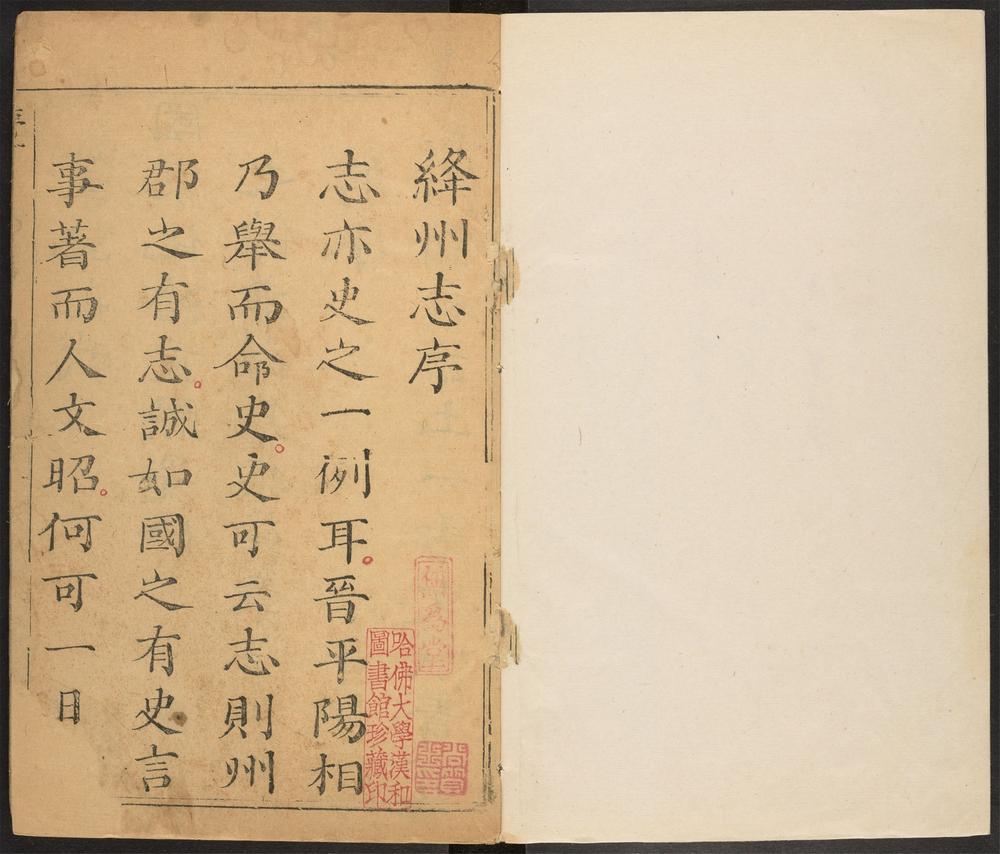 絳州志序
志亦史之一例耳晉平陽相
乃舉而命史史可云志則州
郡之有志誠如國之有史言
事著而人文昭何可一日
哈佛大學漢和
圖書館珍藏印